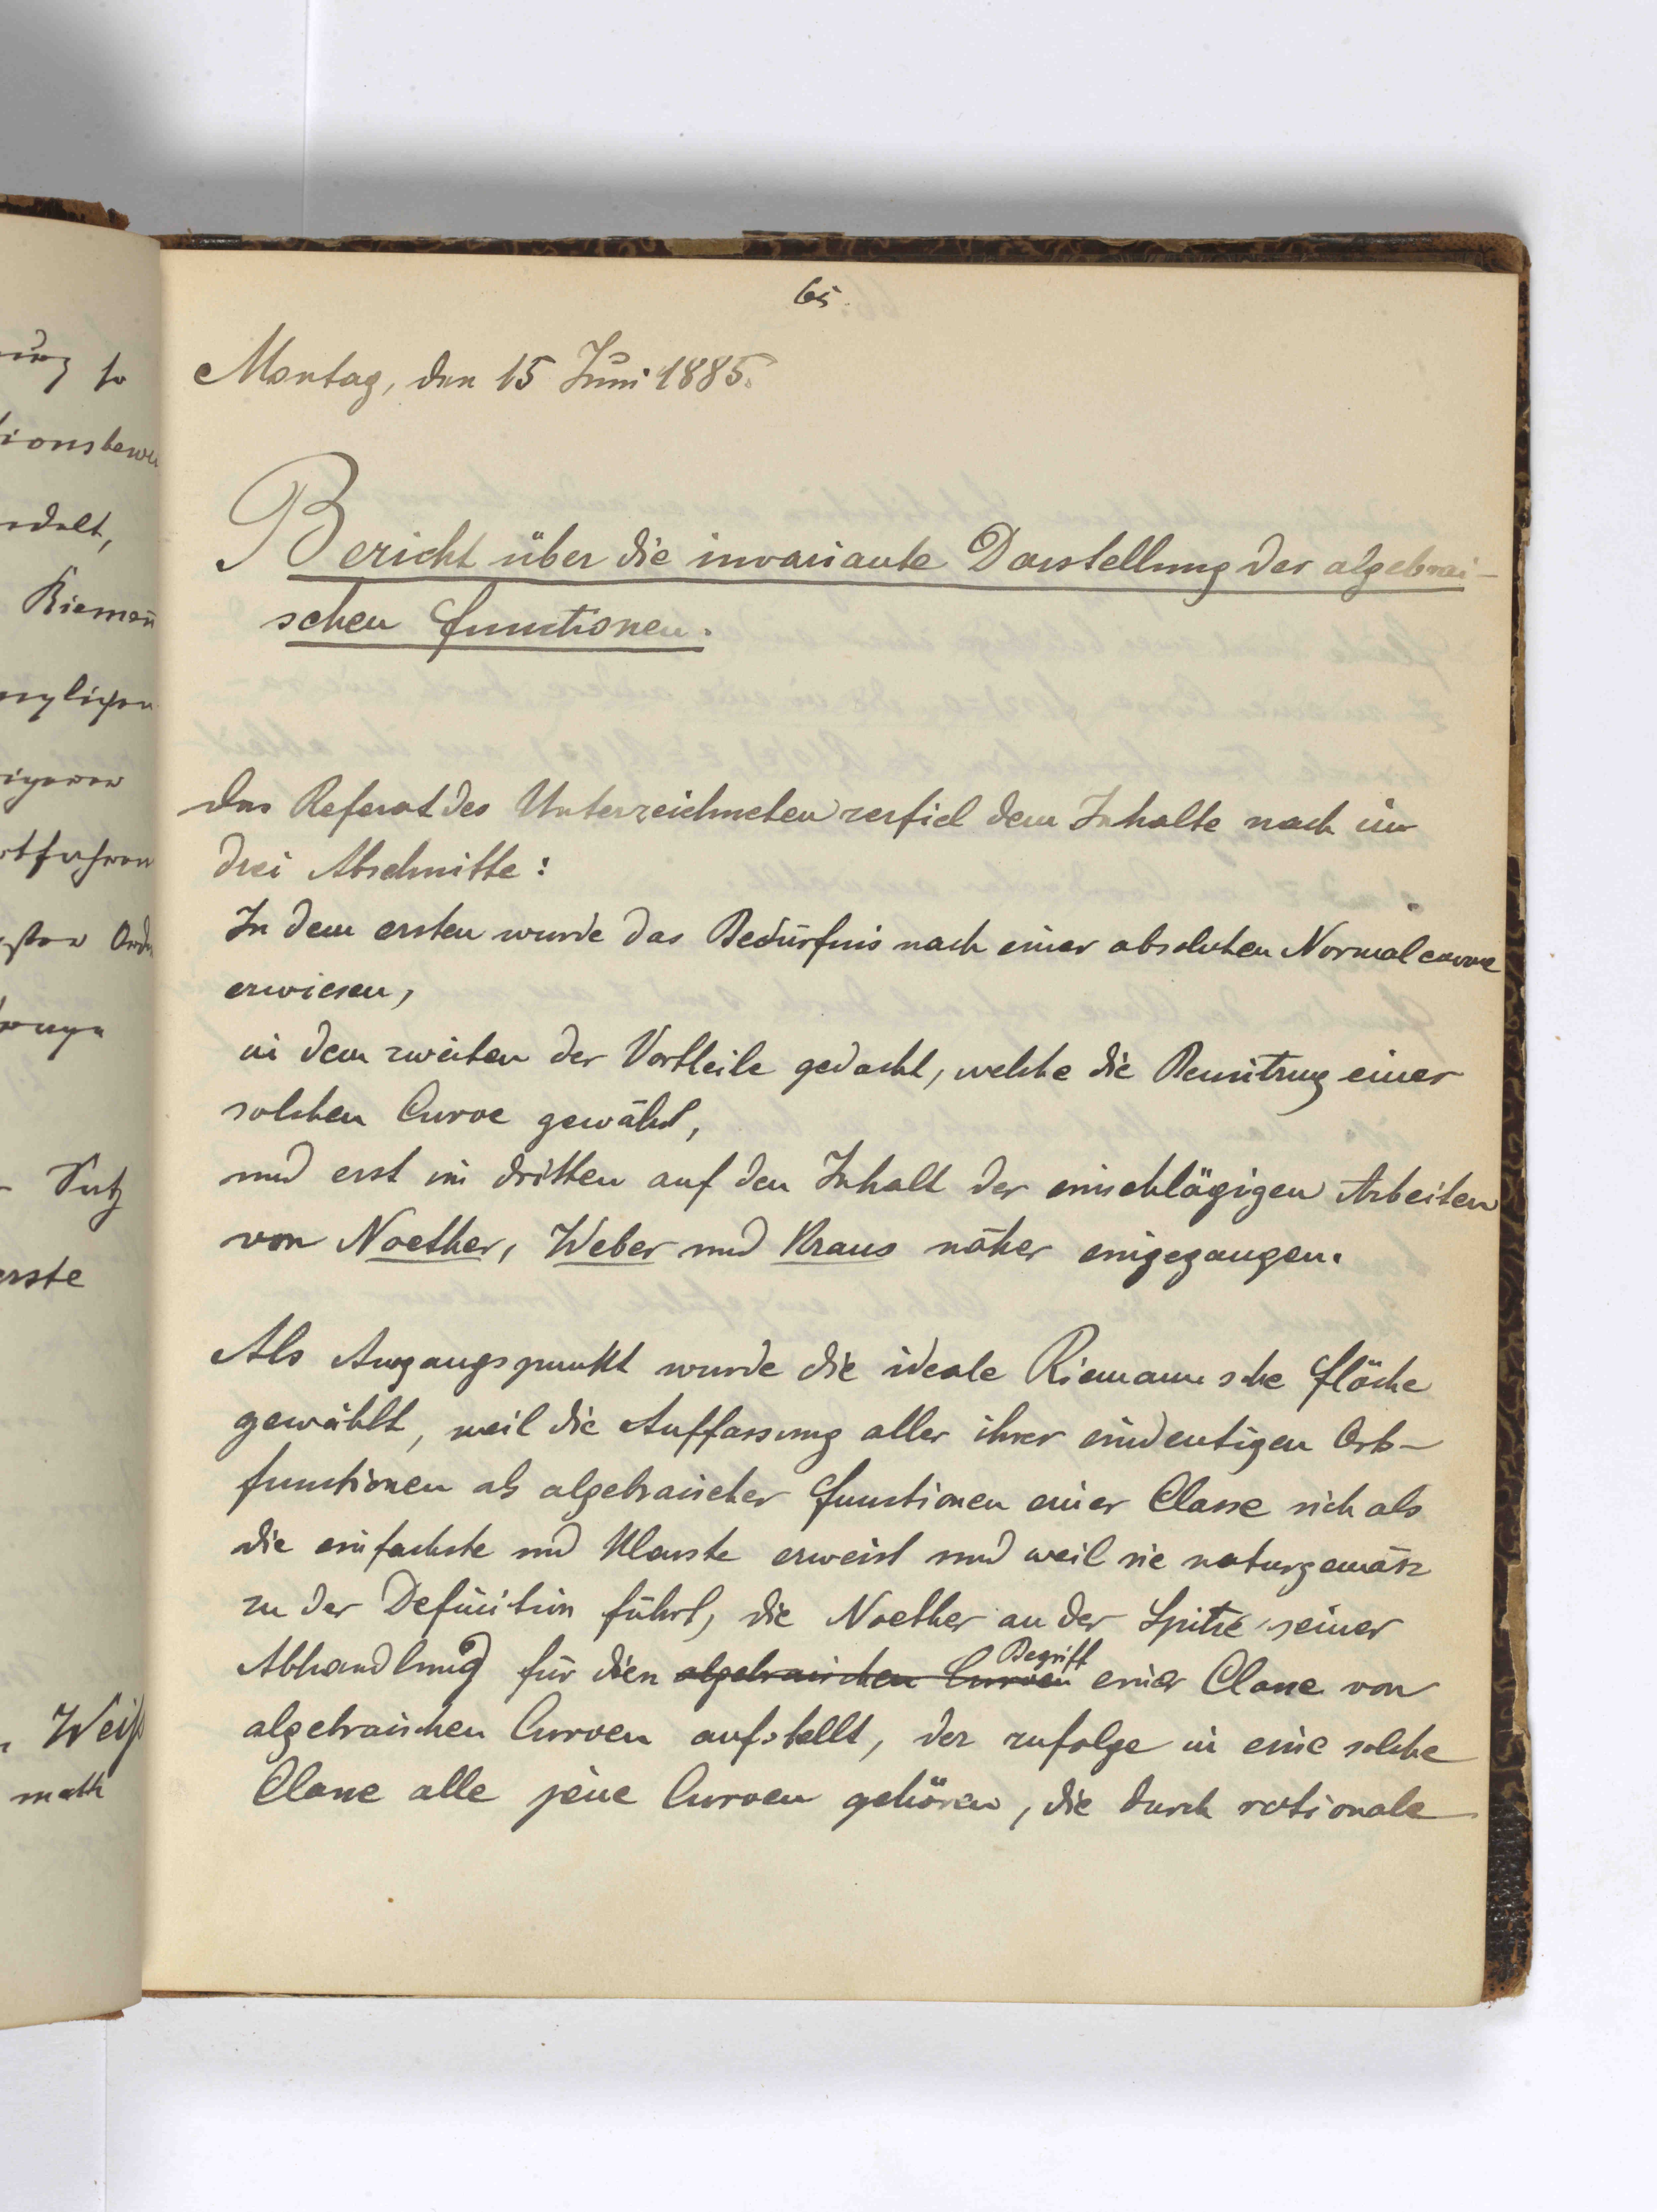 65.
Montag, den 15 Juni 1885.
Bericht über die invariante Darstellung der algebrai-
schen Functionen.
Das Referat des Unterzeichneten zerfiel dem Inhalte nach in
drei Abschnitte:
In dem ersten wurde das Bedürfnis nach einer absoluten Normalcurve
erwiesen,
in dem zweiten der Vortheile gedacht, welche die Benützung einer
solchen Curve gewährt,
und erst im dritten auf den Inhalt der einschlägigen Arbeiten
von Noether, Weber und Kraus näher eingegangen.
Als Ausgangspunkt wurde die ideale Riemannsche Fläche
gewählt, weil die Auffassung aller ihrer eindeutigen Orts-
functionen als algebraischer Functionen einer Classe sich als
die einfachste und klarste erweist und weil sie naturgemäsz
zu der Definition führt, die Noether an der Spitze seiner
Abhandlung für den algebraischen Curven Begriff einer Classe von
algebraischen Curven aufstellt, der zufolge in eine solche
Classe alle jene Curven gehören, die durch rationale
ung so
tionsbewe
ndelt,
Riemañ
rtfahren
Satz
erste
Weiß
math